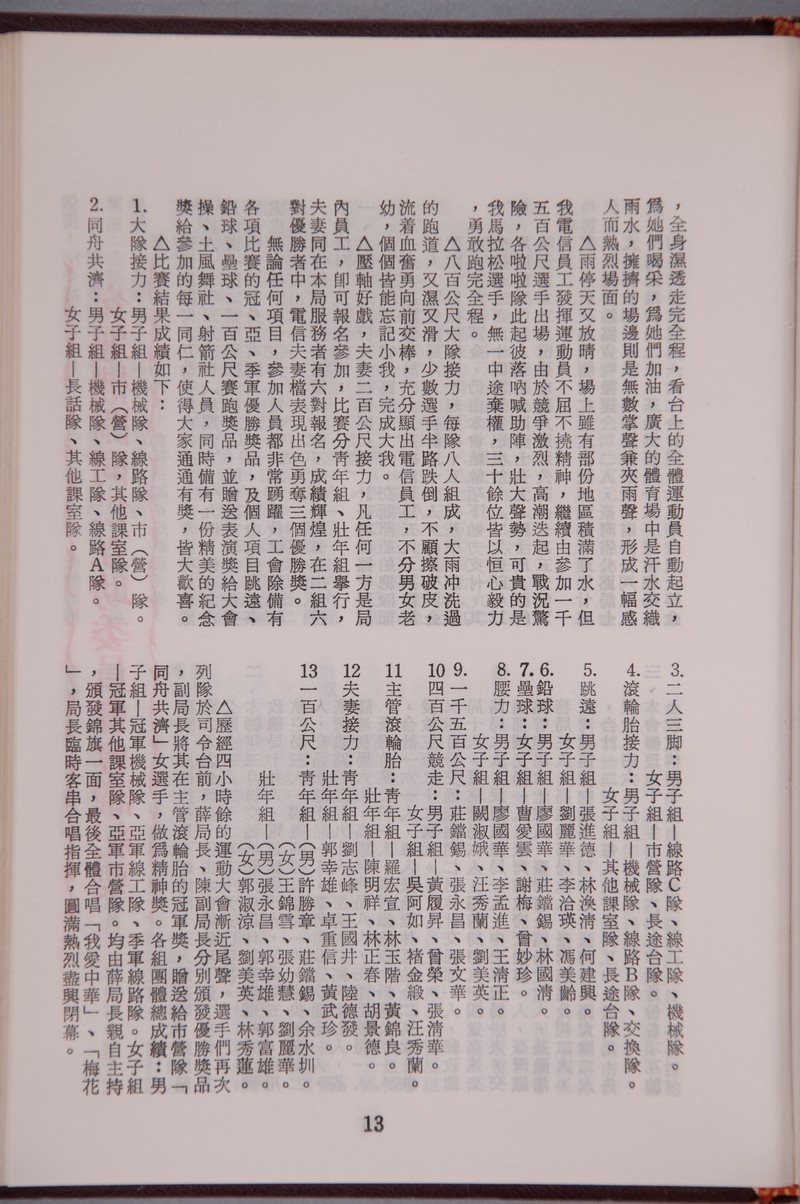 ，全身濕透走完全程，看台上的全體運動員自動起立，
爲她們喝采，爲她們加油，廣大的體育場中是汗水交織
雨水，擁擠的場邊則是無數掌聲兼夾雨聲，形成一幅感
人而熱烈場面。
△雨停天又放晴，場上雖有部份地區積滿了水，但
我電信員工發揮運動員不屈不撓精神，繼續由參加一千
五百公尺選手出場，由於競爭激烈，高潮迭起，戰況驚
險，各啦啦隊此起彼落吶喊助陣，壯大聲勢，可貴的是
我馬拉松選手，無一中途棄權，三十餘位皆以恒心毅力
，勇敢跑完全程。
△八百公尺大隊接力，每隊八人組成，大雨冲洗過
的跑道，又濕又滑，少數選手半路跌倒，不顧擦破皮，
流着血奮勇向前交棒，充分顯出電信員工，不分男女老
幼，個個皆能忘記小我，完成大我。
△壓軸好戲，夫妻二百公尺接力，凡任何一方是局
內員工，卽可報名參加，比賽分靑年組、壯年組舉行，
夫妻同在本局服務者有六對報名，成績輝煌，在二組六
對優勝者中，電信夫妻檔表現出色勇奪三個優勝獎。
無論任何項目，參加人員都非常踴躍，工會除備有
各項比賽的冠、亞、季軍優勝獎品，及個人項目跳遠、
鉛球、壘球、一百公尺賽跑獎品，並贈送表演獎給大會
操、土風舞社、射箭社人員，同時備有一份精美的紀念
獎給參加的每一同仁，使得大家通通有獎，皆大歡喜。
△比賽結果成績如下：
1.大隊接力：男子組—機械隊、線路隊、市（營）隊。
女子組—市（營）隊，其他課室隊。
2.同舟共濟：男子組—機械隊、線工隊、線路A隊。
女子組—長話隊、其他課室隊。
3.二人三脚：男子組—線路C隊、線工隊、機械隊。
女子組—市營隊、長途台隊。
4.滾輪胎接力：男子組—機械隊、線路B隊、交換隊。
女子組—其他課室隊、長途台隊。
5.跳遠：男子組—張進德、林渙淸、何建興。
女子組—劉麗華、李洽瑛、馮美齡。
6.鉛球：男子組—廖國華、莊鐺錫、林國淸。
7.壘球：女子組—曹愛雲、謝梅、曾妙珍。
8.腰力：男子組—廖國華、李孟進、王淸正。
女子組—闕淑娥、汪秀蘭、劉美英。
9.一千五百公尺：莊鐺錫、張永昌、張文華。
10四百公尺競走：男子組—黃履昇、曾榮、張淸華。
女子組—吳阿如、褚金緞、汪秀蘭。
11主管滾輪胎：靑年組—羅宏宣、林玉階、黃錦良。
壯年組—陳明祥、林正春、胡景德。
12夫妻接力：靑年組—劉志峰、王國井、陸德發。
壯年組—郭幸雄、卓重信、黃武珍。
13一百公尺：靑年組—（男）許勝章、莊鐺錫、余水圳。
（女）王錦雪、張幼慧、劉麗華。
壯年組—（男）張永昌、郭幸雄、郭富雄。
（女）郭淑涼、劉美英、林秀蓮。
△歷經四小時餘的運動大會漸近尾聲，選手們再次
列隊於司令台前，薛局長、陳副局長分别頒發優勝獎品
，副局長將其在主管滾輪胎的冠軍獎，贈送給市營隊「
同舟共濟」女選手，做爲精神獎。各組團體總成績：男
子組—冠軍機械隊、亞軍線工隊、季軍線路隊。女子組
—冠軍其他課室隊、亞軍市營隊。均由薛局長親自主持
，頒發錦旗一面，最後全體合唱「我愛中華」、「梅花
」，局長臨時客串合唱指揮，圓滿熱烈盡興閉幕。
13